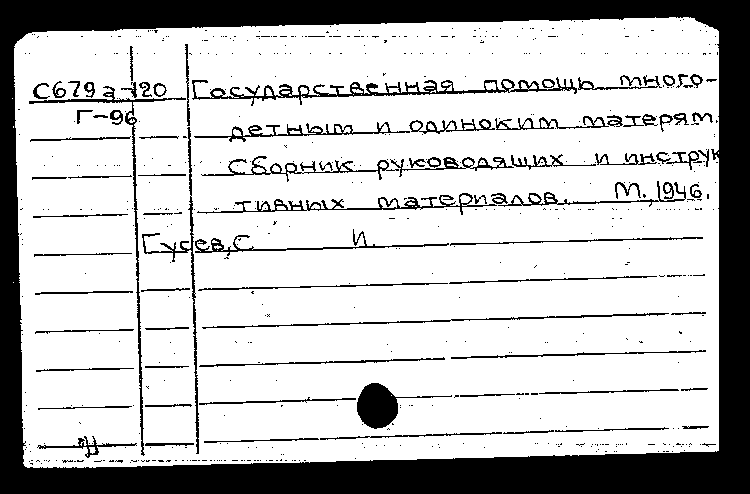 С679а-120 Государственная помощь много-
Г-96 детным и одиноким матерям.
Сборник руководящих и инструк
тивных материалов. М., 1946.
Гусев, С И.